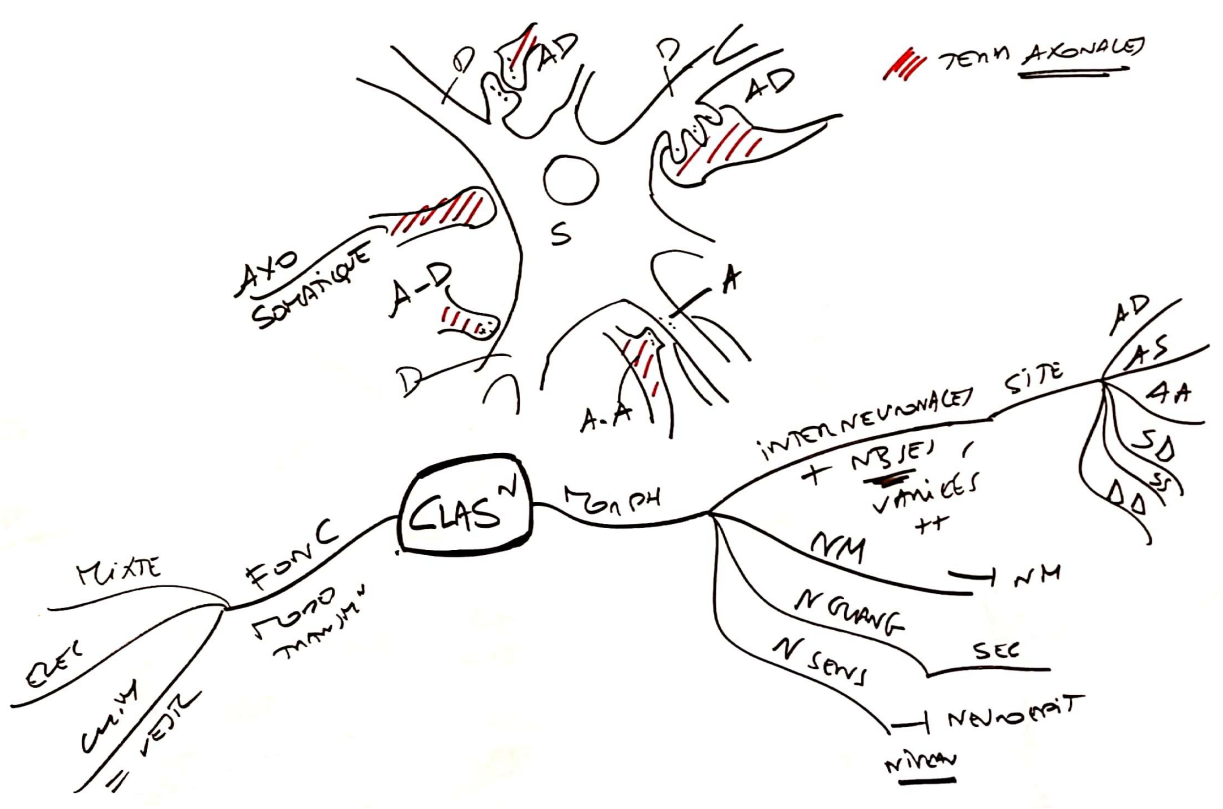 D
AD
D
AD
TERM AXONALES
S
AXO
SOMATIQUE
A-D
D
A
A-A
CLAS N
MORPH
INTERNEURONALES
+ NBSES,
VARIEES
++
SITE
AD
AS
AA
SD
SS
DD
NM
NM
N GLANG
SEC
N SENS
NEUROEPIT
NIVEAU
FONC
MODO
TRANSM N
MIXTE
ELEC
CHIM
= VESIC